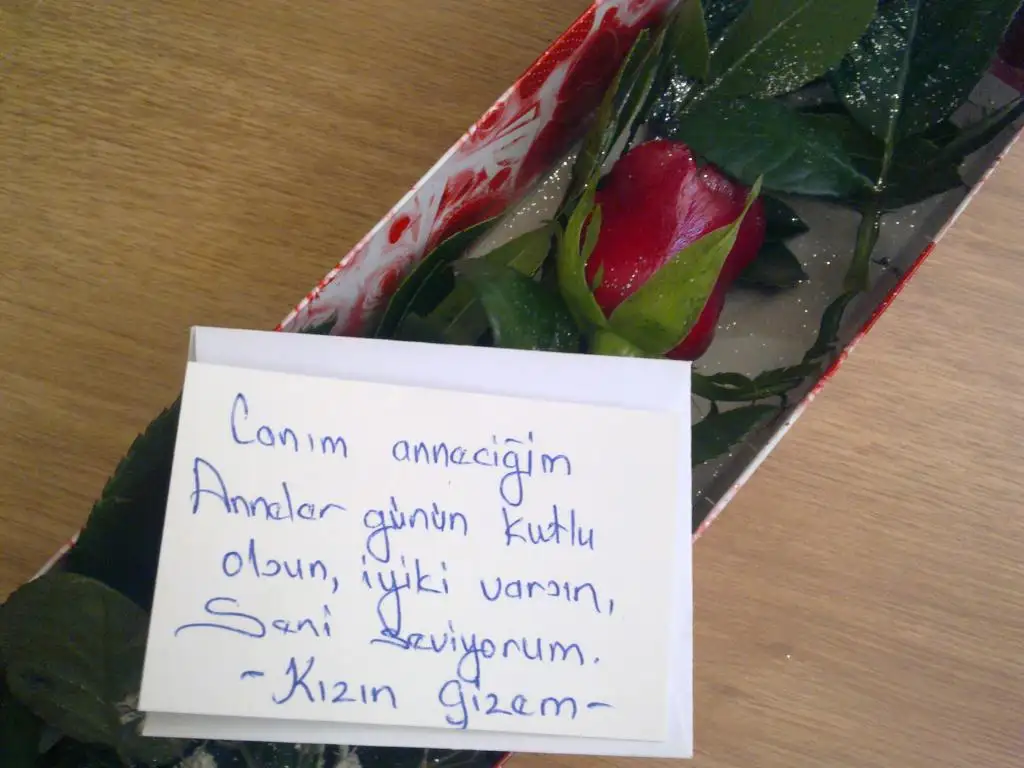 Canım anneciğim
Anneler günün kutlu
olsun, iyiki varsın,
Seni seviyorum.
-Kızın Gizem-